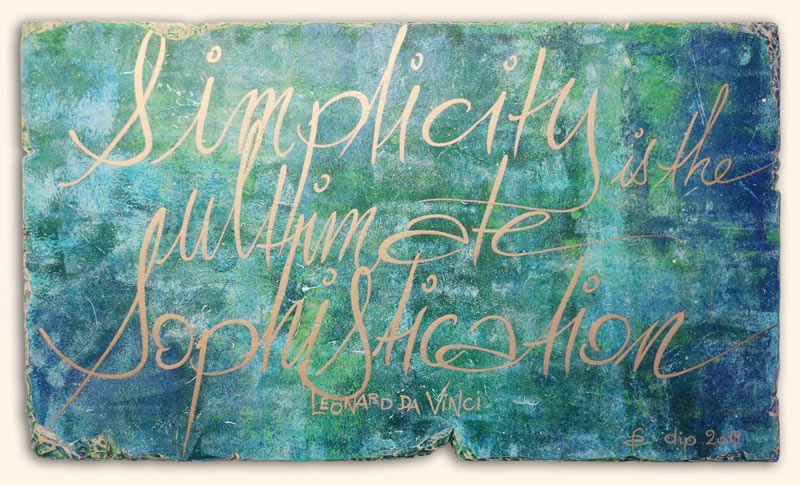 Simplicity is the
ultimate
Sophistication
LEONARD DA VINCI
dip 2011